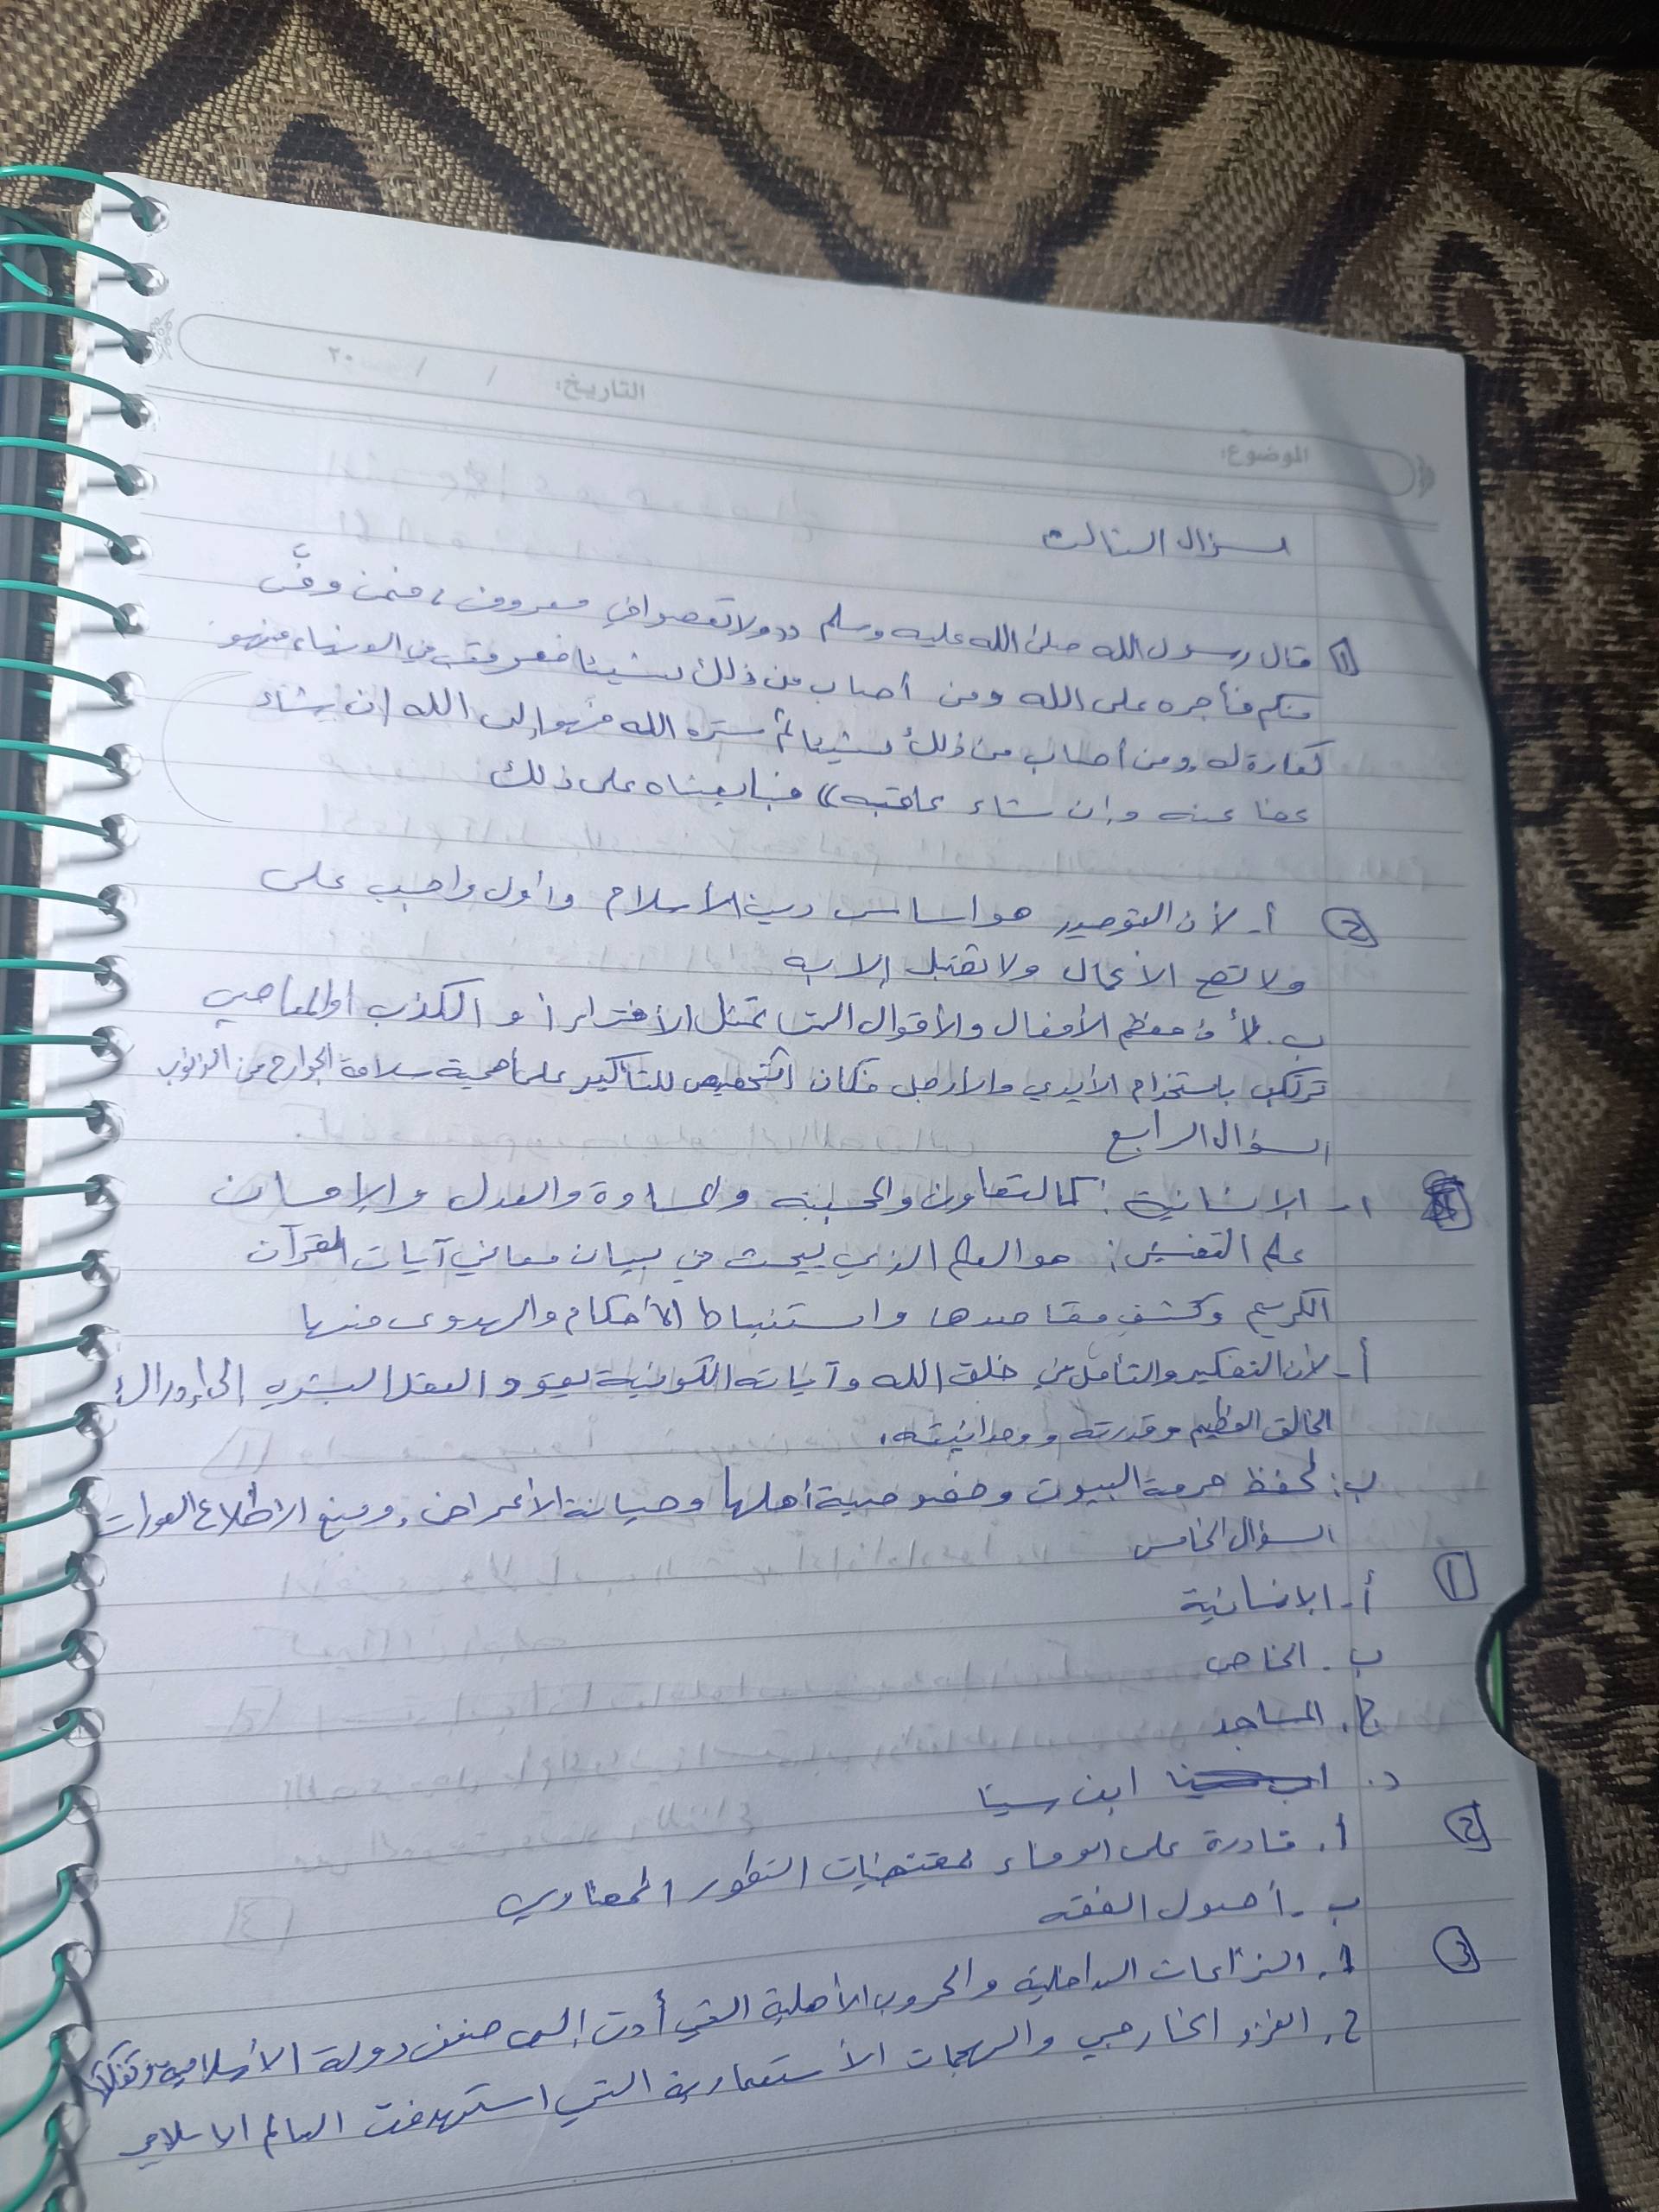 التاريخ: / / ٢٠
الموضوع:
لسؤال الثالث
1 قال رسول الله صلى الله عليه وسلم ((ولا تعصوا في معروف، فمن وفّى
منكم فأجره على الله ومن أصاب من ذلك شيئا فعوقب في الدنيا، فهو
كفارة له، ومن أصاب من ذلك شيئا ثم ستره الله فهو إلى الله إن شاء
عفا عنه وإن شاء عاقبه)) فبايعناه على ذلك
2 أ- لأن التوحيد هو اساس دين الأسلام وأول واجب على
ولا تصح الأعمال ولا تقبل إلا به
ب. لأن معظم الأفعال والأقوال التي تمثل الأفتراء أو الكذب او المعاصي
ترتكب باستخدام الأيدي والأرجل فكان التخصيص للتأكيد على أهمية سلامة الجوارح من الذنوب
السؤال الرابع
1- الإنسانية: كالتعاون والمحبة والمساوة والعدل والإحسان
علم التفسير: هو العلم الذي يبحث في بيان معاني آيات القرآن
الكريم وكشف مقاصدها واستنباط الأحكام والهدى منها
أ- لأن التفكير والتأمل في خلق الله وآياته الكونية يقود العقل البشري إلى إدراك
الخالق العظيم وقدرته ووحدانيته.
ب: لحفظ حرمة البيوت وخصوصية أهلها وصيانة الأعراض، ومنع الاطلاع العورات
السؤال الخامس
1 أ. الإنسانية
ب. الخاص
ج. المساجد
د. ابن سينا
2 أ. قادرة على الوفاء بمقتضيات التطور الحضاري
ب. أصول الفقه
3 أ. النزاعات الداخلية والحروب الأهلية التي أدت إلى ضعف دولة الأسلامية وتفككها
ج. الغزو الخارجي والهجمات الأستعمارية التي استهدفت العالم الاسلامي